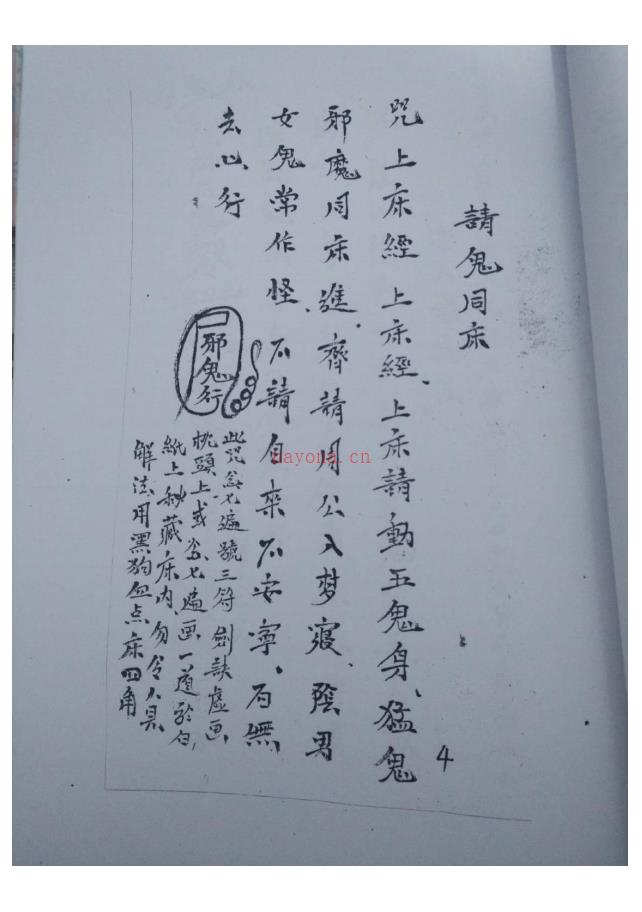 請鬼同床
咒上床經上床經、上床請動五鬼身、猛鬼
邪魔同床進、齊請周公入梦寢、陰男
女鬼常作怪、不請自来不安寧、有無
去心行
邪鬼行
此咒念七遍號三符 劍訣虚画
枕頭上或念七遍画一道於白
紙上秘藏床内、勿令人見
解法用黑狗血点床四角
4
dayona.cn